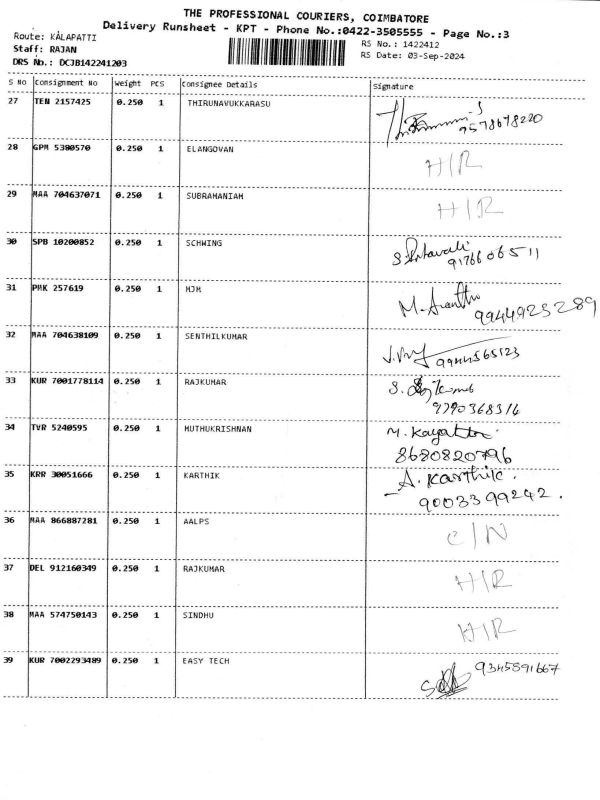 THE PROFESSIONAL COURIERS, COIMBATORE
Delivery Runsheet - KPT - Phone No.:0422-3505555 - Page No.:3
Route: KALAPATTI
RS No.: 1422412
Staff: RAJAN
RS Date: 03-Sep-2024
DRS No.: DCJB142241203
S No Consignment No Weight PCS Consignee Details Signature
27 TEN 2157425 0.250 1 THIRUNAVUKKARASU
9578678220
28 GPM 5380570 0.250 1 ELANGOVAN H/R
29 MAA 704637071 0.250 1 SUBRAMANIAM H/R
30 SPB 10200852 0.250 1 SCHWING
9176606511
31 PMK 257619 0.250 1 MJM M.
9944925289
32 MAA 704638109 0.250 1 SENTHILKUMAR
9944565123
33 KUR 7001778114 0.250 1 RAJKUMAR S.
9790368316
34 TVR 5240595 0.250 1 MUTHUKRISHNAN M.
8680820796
35 KRR 30051666 0.250 1 KARTHIK A. Karthik.
9003399242.
36 MAA 866887281 0.250 1 AALPS C/N
37 DEL 912160349 0.250 1 RAJKUMAR H/R
38 MAA 574750143 0.250 1 SINDHU H/R
39 KUR 7002293489 0.250 1 EASY TECH 9345891667